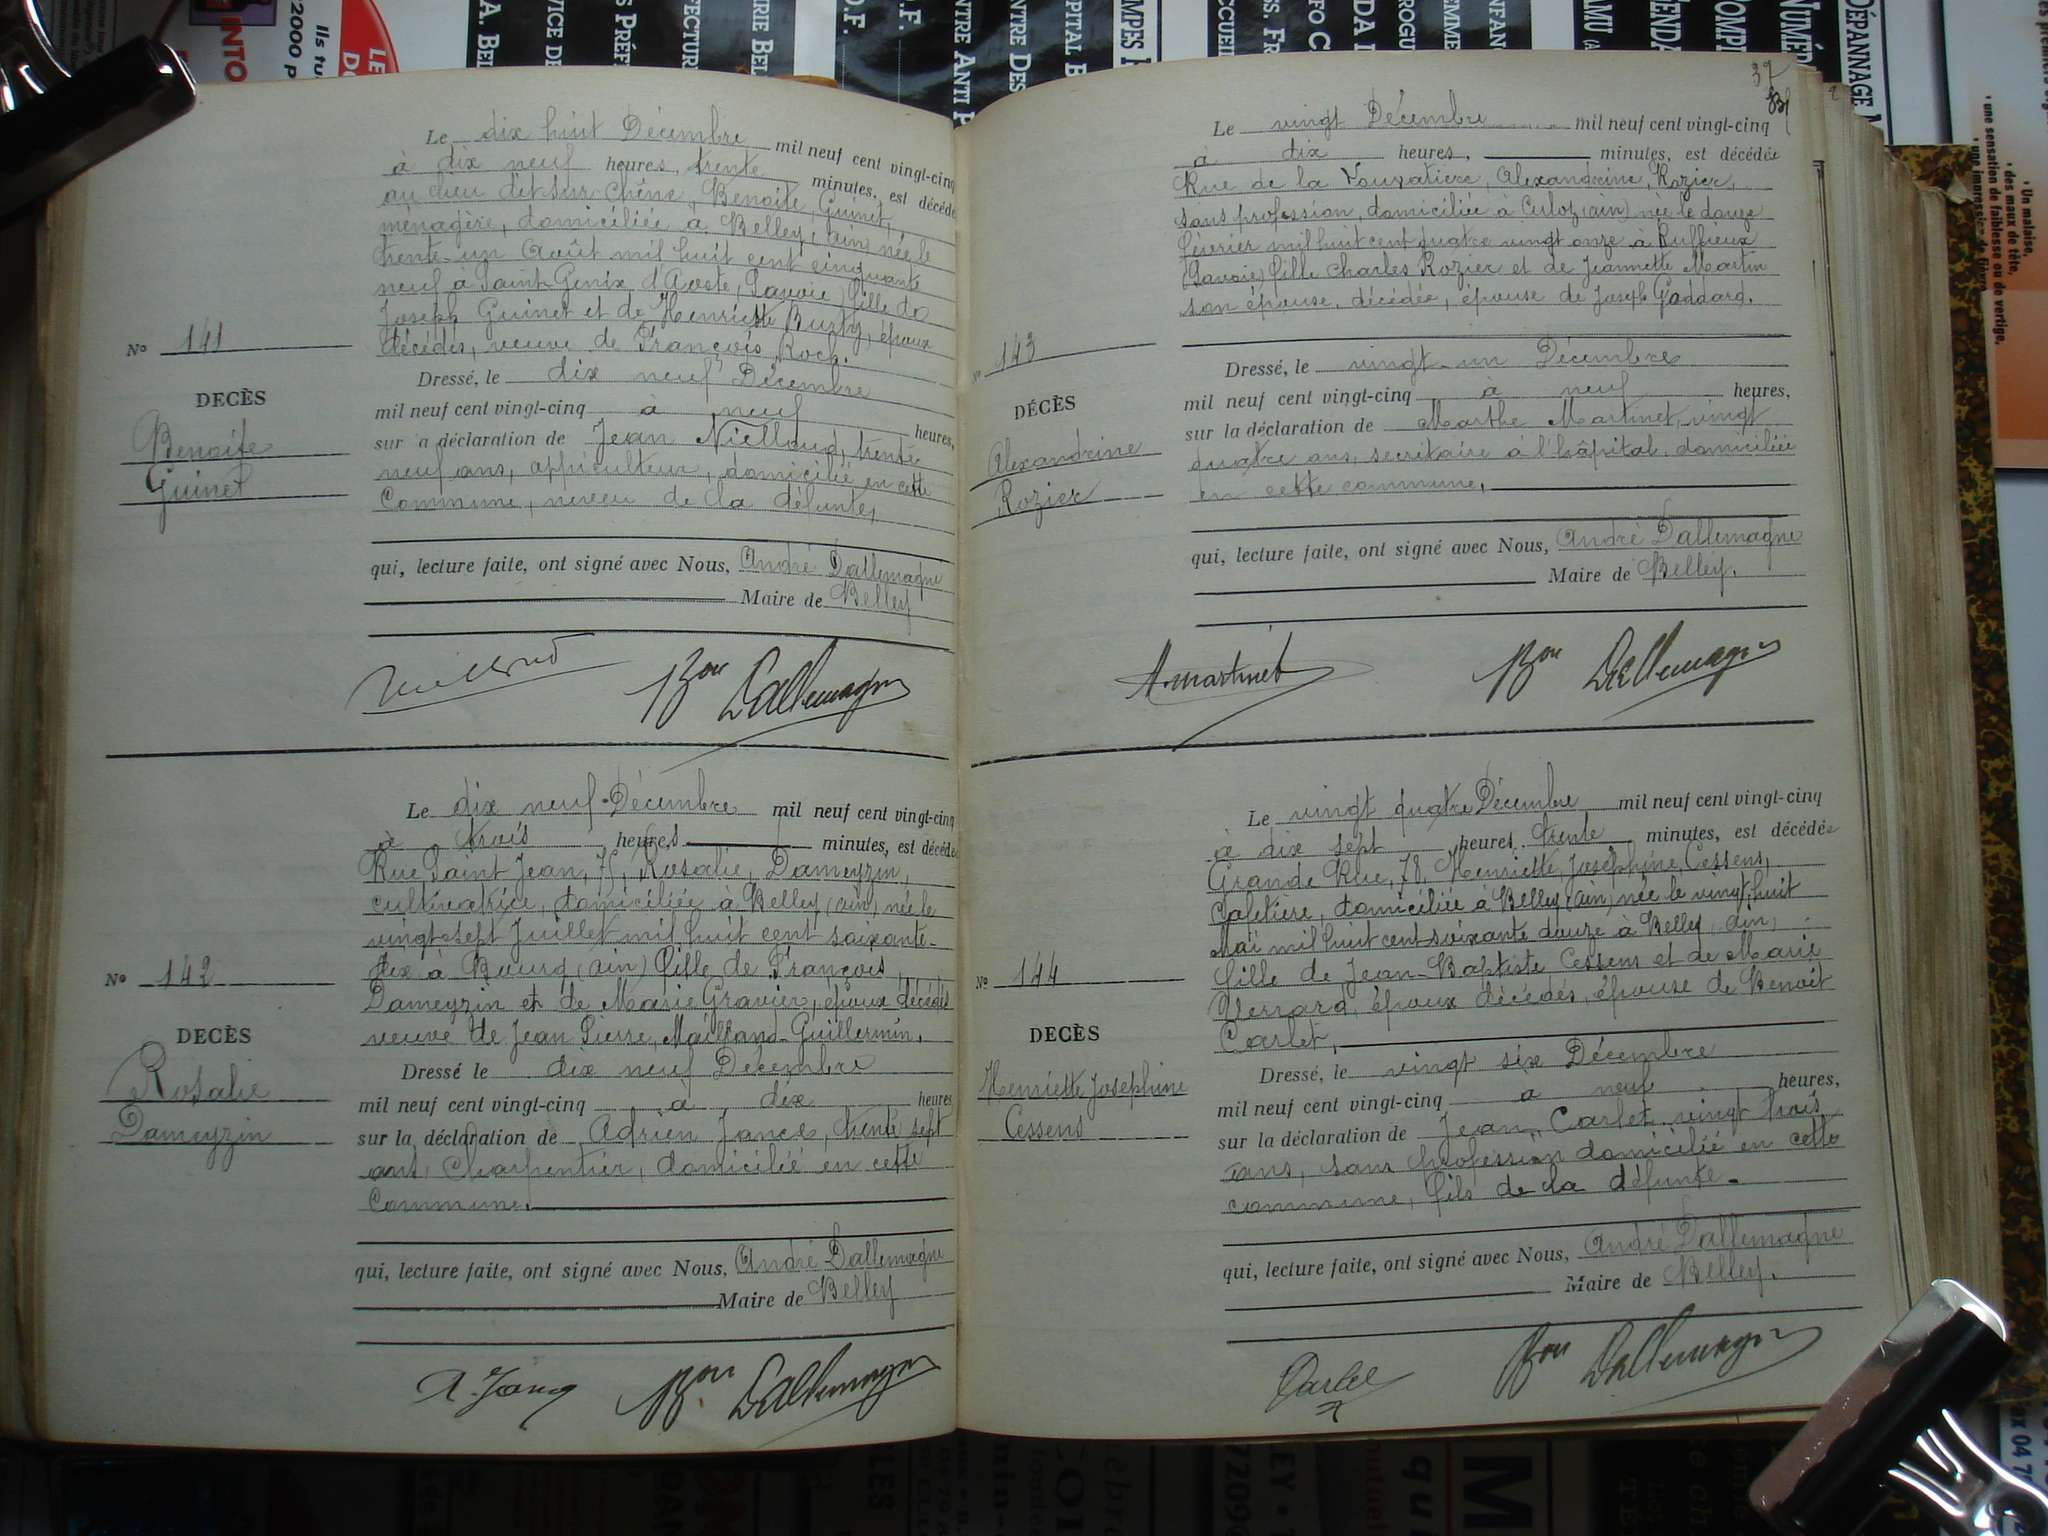 Le dix huit Décembre mil neuf cent vingt-cinq
à dix neuf heures, trente minutes, est décédé
au lieu dit sur Chêne, Benoite, Guinet,
ménagère, domiciliée à Belley (ain) née le
trente-un Août mil huit cent cinquante
neuf à Saint Genix d'Aoste, (Savoie) fille de
Joseph Guinet et de Henriette Burty, époux
décédés, veuve de François Roch.
No 141
DECÈS
Benoite
Guinet
Dressé, le dix neuf Décembre
mil neuf cent vingt-cinq à neuf heures,
sur a déclaration de Jean Niélloud, trente
neuf ans, appiculteur, domicilié en cette
Commune, neveu de la défunte,
qui, lecture faite, ont signé avec Nous, André Dallemagne
Maire de Belley
Bon Dallemagne
Le dix neuf Décembre mil neuf cent vingt-cinq
à trois heures minutes, est décédé
Rue Saint Jean, 75, Rosalie, Dameyzin,
cultivatrice, domiciliée à Belley (ain) née le
vingt-sept Juillet mil huit cent soixante-
dix à Bourg (ain) fille de François
Dameyzin et de Marie Gravier, époux décédés
veuve de Jean Pierre, Mailland-Guillermin.
No 142
DECÈS
Rosalie
Dameyzin
Dressé le dix neuf Décembre
mil neuf cent vingt-cinq à dix heures
sur la déclaration de Adrien Jance, trente sept
ans, Charpentier, domicilié en cette
Commune.
qui, lecture faite, ont signé avec Nous, André Dallemagne
Maire de Belley
Bon Dallemagne
37
Le vingt Décembre mil neuf cent vingt-cinq
à dix heures, minutes, est décédée
Rue de la , Alexandrine, Rozier,
sans profession, domiciliée à Culoz (ain) née le douze
février mil huit cent quatre vingt onze à Ruffieux
(Savoie) fille Charles Rozier et de Jeannette Martin
son épouse, décédée, épouse de Joseph Goddard.
No 143
DÉCÈS
Alexandrine
Rozier
Dressé, le vingt-un Décembre
mil neuf cent vingt-cinq à neuf heures,
sur la déclaration de Marthe Martinet, vingt
quatre ans, secrétaire à l'hôpital, domiciliée
en cette commune,
qui, lecture faite, ont signé avec Nous, André Dallemagne
Maire de Belley.
Martinet Bon Dallemagne
Le vingt quatre Décembre mil neuf cent vingt-cinq
à dix sept heures, trente minutes, est décédée
Grande Rue, 78, Henriette, Joséphine, Cessens,
Cafetière, domiciliée à Belley (ain) née le vingt, huit
Mai mil huit cent soixante douze à Belley (ain),
fille de Jean-Baptiste Cessens et de Marie
, époux décédés, épouse de Benoit
Carlet,
No 144
DECÈS
Henriette Joséphine
Cessens
Dressé, le vingt six Décembre
mil neuf cent vingt-cinq à neuf heures,
sur la déclaration de Jean, Carlet, vingt trois
ans, sans profession domicilié en cette
commune, fils de la défunte.
qui, lecture faite, ont signé avec Nous, André Dallemagne
Maire de Belley.
Carlet Bon Dallemagne